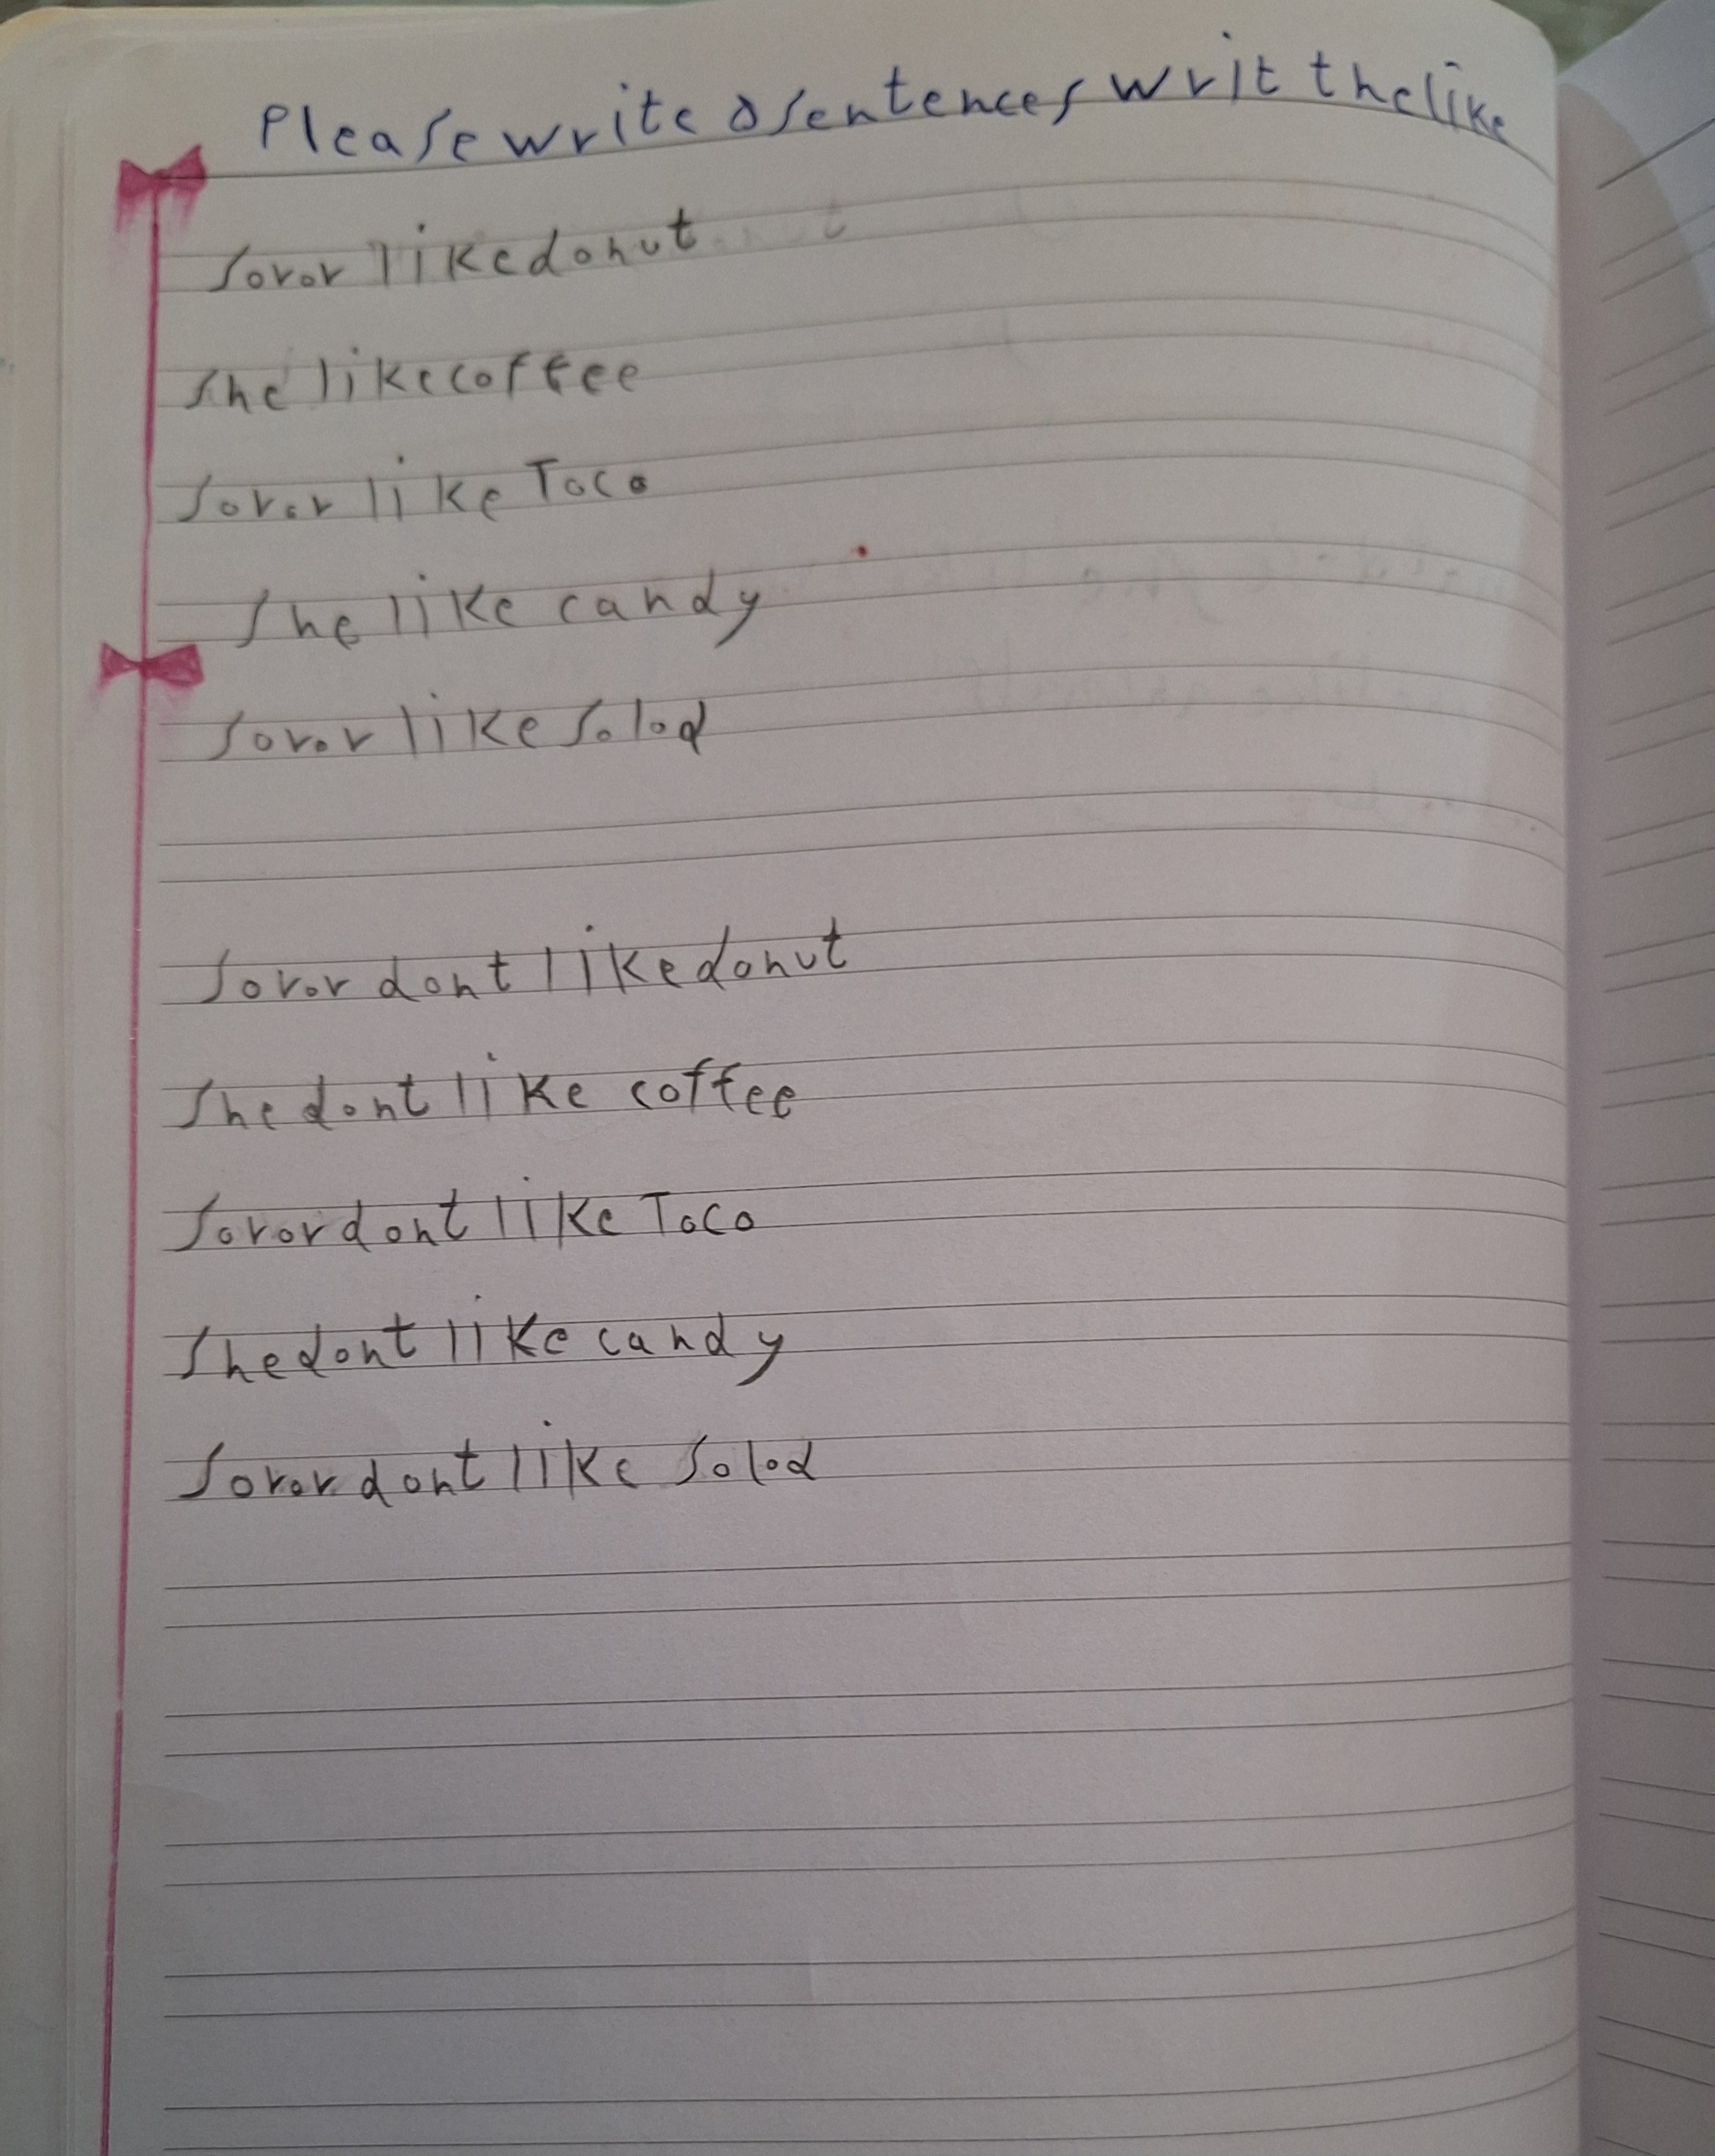 Please write 5 sentences writ the like
Sorar like donut
She like coffee
Sorar like Taco
She like candy
Sorar like Salad
Sorar dont like donut
She dont like coffee
Sorar dont like Taco
She dont like candy
Sorar dont like Salad